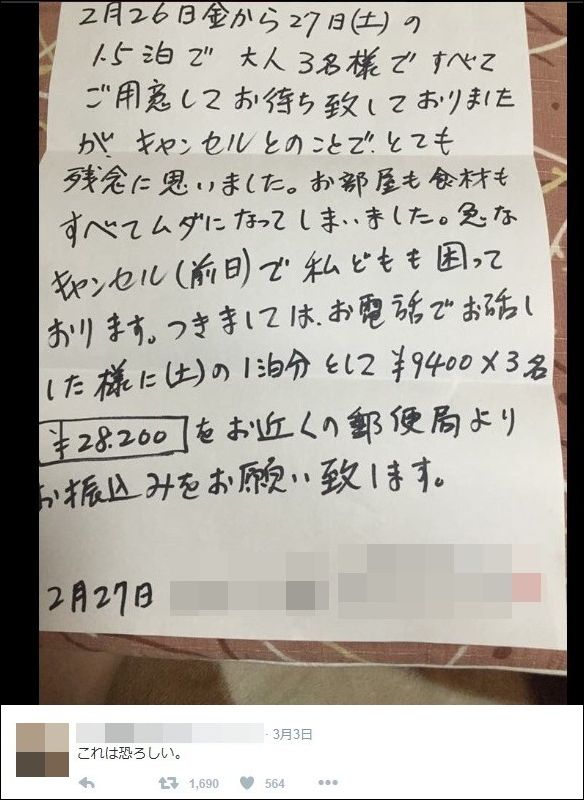 2月26日金から27日(土)の
1.5泊で 大人3名様ですべて
ご用意してお待ち致しておりました
が、キャンセルとのことで、とても
残念に思いました。お部屋も食材も
すべてムダになってしまいました。急な
キャンセル(前日)で私どもも困って
おります。つきましては、お電話でお話し
した様に(土)の1泊分として¥9400×3名
¥28.200をお近くの郵便局より
お振込みをお願い致します。
2月27日
· 3月3日
これは恐ろしい。
1,690 564